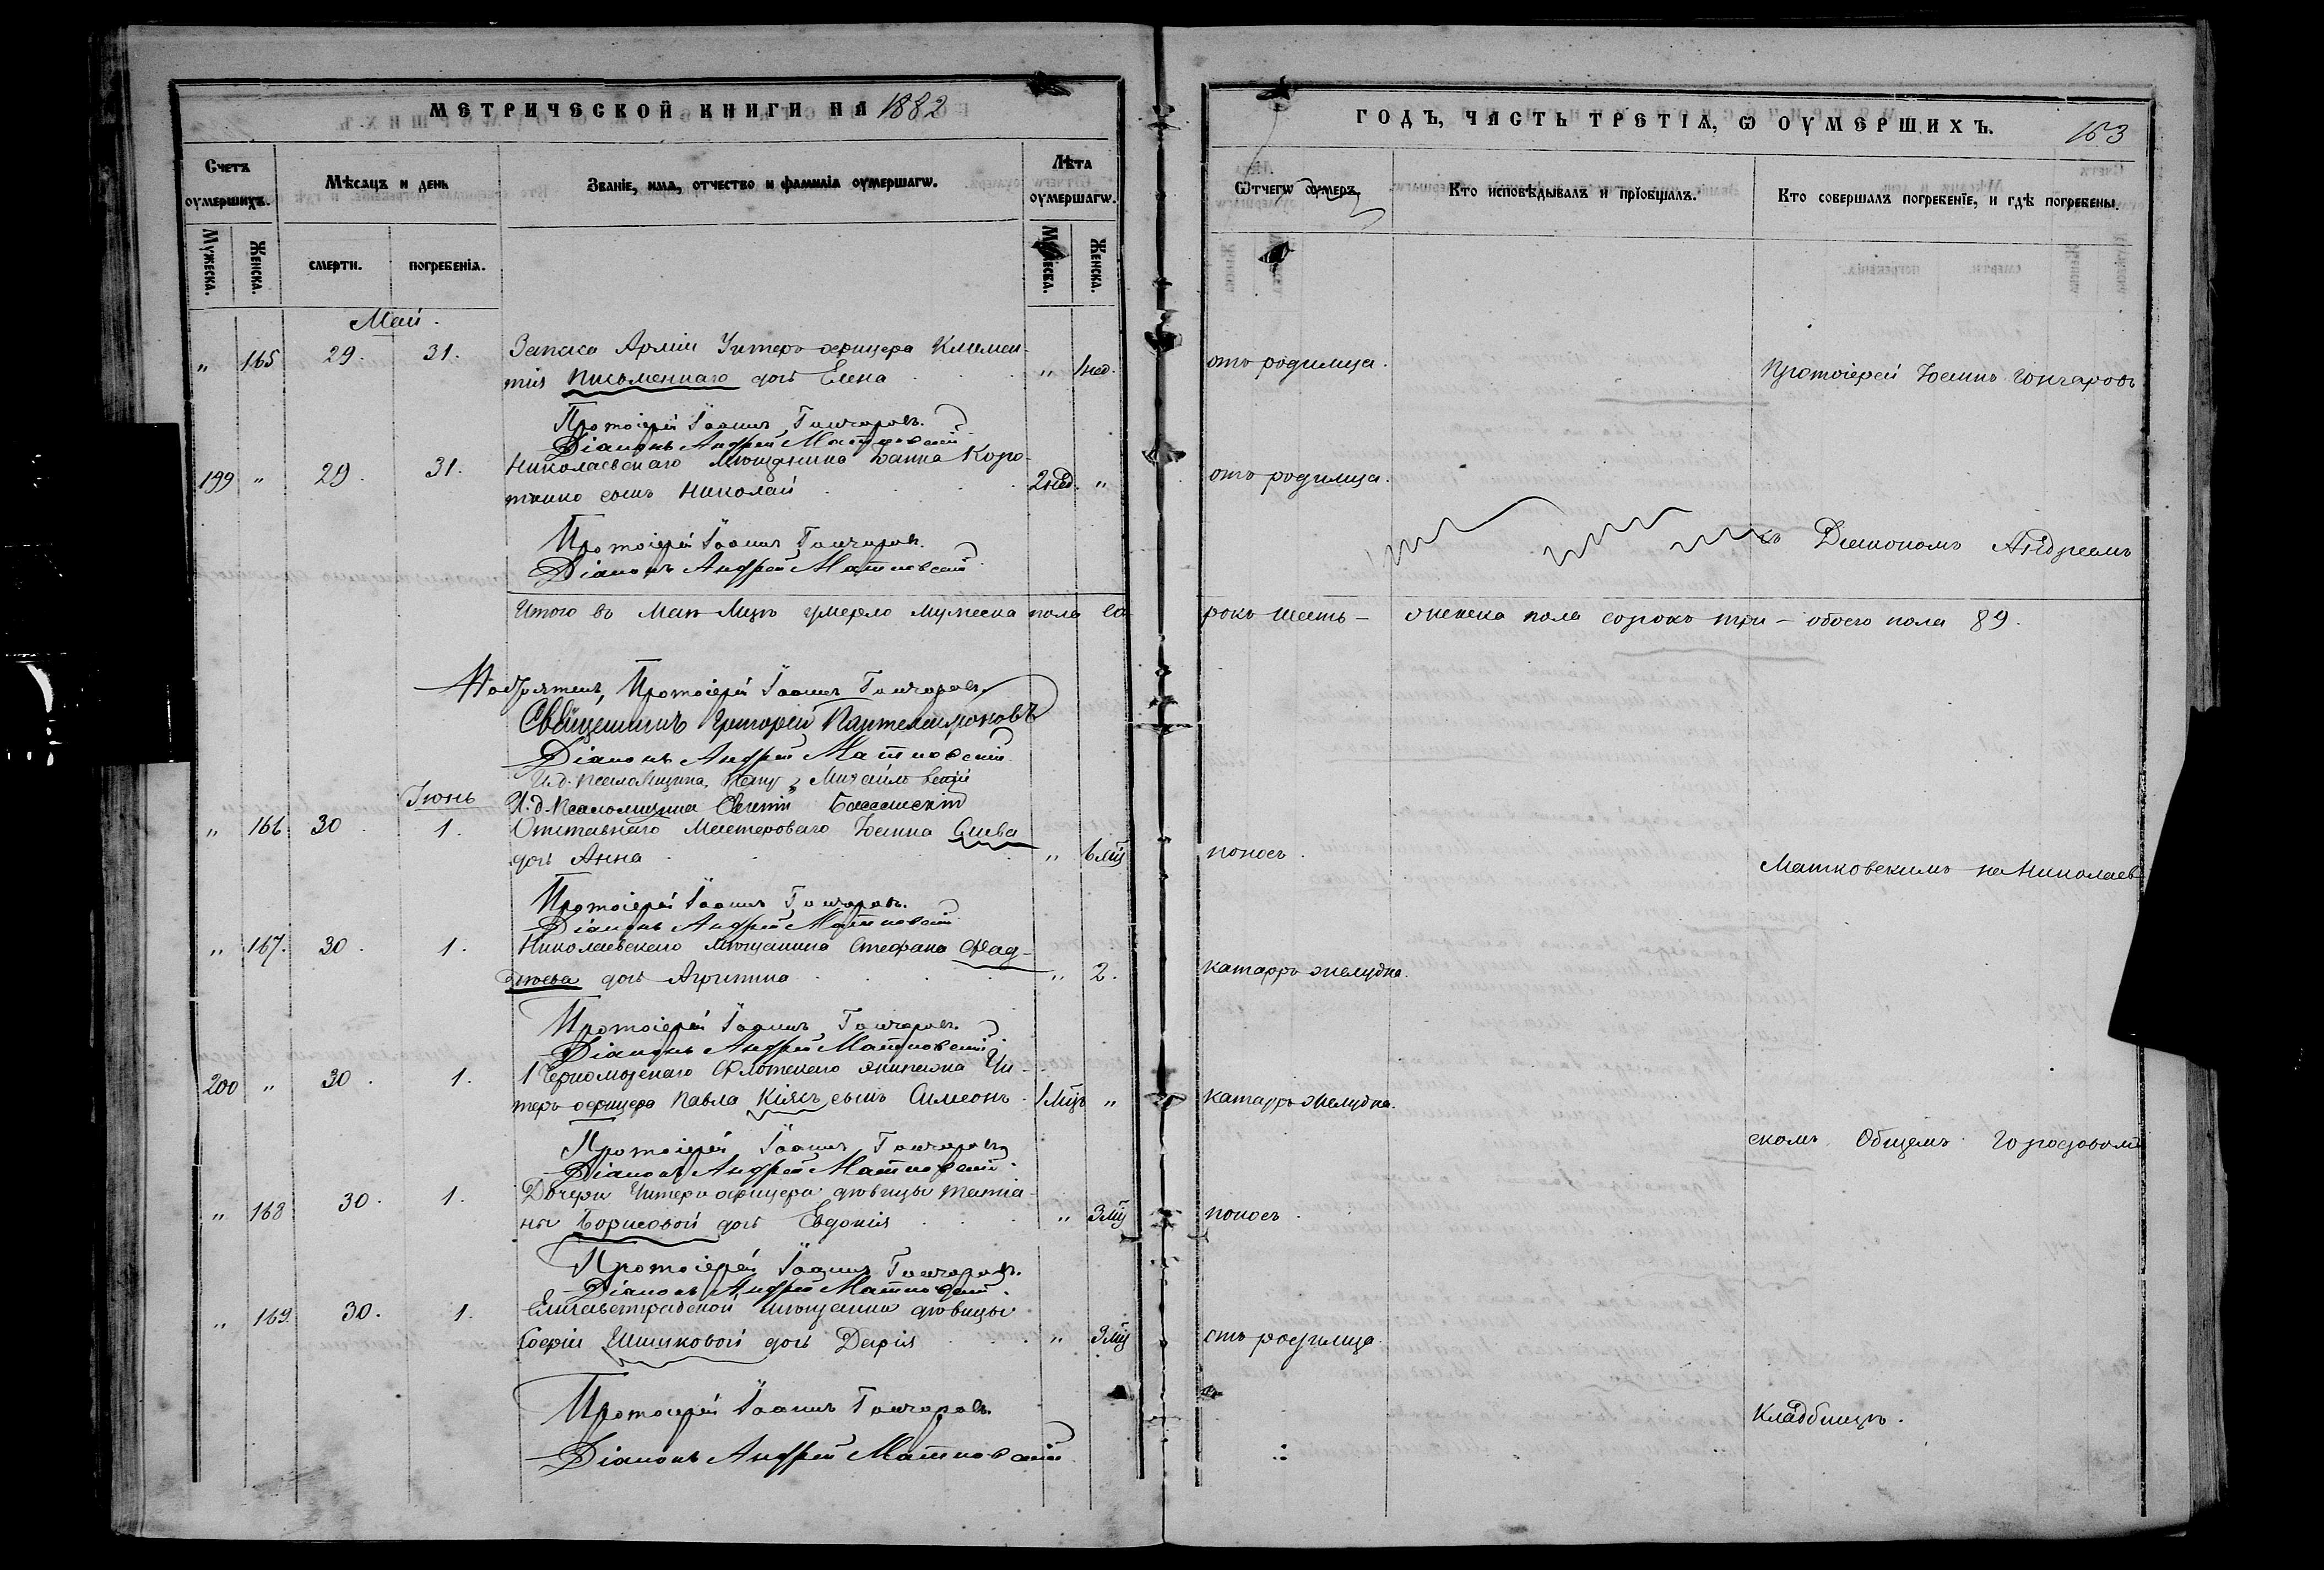 МЕТРИЧЕСКОЙ КНИГИ НА 1882
Счетъ оумершихъ.
Мѣсяцъ и день
Званіе, имя, отчество и фамилія оумершагѡ.
Лѣта оумершагѡ.
Мꙋжеска.
Женска.
смерти.
погребенія.
Мꙋжеска.
Женска.
Май.
" 165 29. 31. Запаса Арміи Унтеръ-офицера Климен-
тія Письменнаго дочь Елена " 1 нед.
Протоіерей Іоаннъ Гончаровъ.
Діаконъ Андрей Матковскій
199 " 29. 31. Николаевскаго мѣщанина Іоанна Коро-
тенко сынъ Николай 2 нед. "
Протоіерей Іоаннъ Гончаровъ.
Діаконъ Андрей Матковскій
Итого въ Маѣ М-цѣ умерло мужеска пола со-
Протоіерей Іоаннъ Гончаровъ
Священникъ Григорій Пантелеимоновъ
Діаконъ Андрей Матковскій
И.д. Псаломщика
Іюнь
И.д. Псаломщика Евгеній
" 166 30. 1. Отставнаго Мастероваго Іоанна
дочь Анна " 6 мц
Протоіерей Іоаннъ Гончаровъ.
Діаконъ Андрей Матковскій
" 167. 30. 1. Николаевскаго мѣщанина Стефана Фад-
дѣева дочь " 2.
Протоіерей Іоаннъ Гончаровъ.
Діаконъ Андрей Матковскій
200 " 30. 1. 1 Черноморскаго Флотскаго экипажа Ун-
теръ-офицера Павла Кіякъ сынъ Симеонъ 1 мцъ "
Протоіерей Іоаннъ Гончаровъ
Діаконъ Андрей Матковскій
" 168 30. 1. Дочери Унтеръ-офицера дѣвицы Татіа-
ны Борисовой дочь Евдокія " 3 мц
Протоіерей Іоаннъ Гончаровъ.
Діаконъ Андрей Матковскій
" 169. 30. 1. Елисаветградской мѣщанки дѣвицы
Софіи Шишковой дочь Дарія " 3 мц
Протоіерей Іоаннъ Гончаровъ.
Діаконъ Андрей Матковскій
ГОДЪ, ЧАСТЬ ТРЕТІЯ, Ѡ ОУМЕРШИХЪ.
163
Ѿтчегѡ оумеръ.
Кто исповѣдывалъ и пріобщалъ.
Кто совершалъ погребеніе, и гдѣ погребены.
отъ родимца.
Протоіерей Іоаннъ Гончаровъ
отъ родимца.
съ Діакономъ Андреемъ
рокъ шесть - женска пола сорокъ три - обоего пола 89.
поносъ.
Матковскимъ на Николаев-
катарръ желудка.
катарръ желудка.
скомъ Общемъ Городовомъ
поносъ.
отъ родимца.
Кладбищѣ.